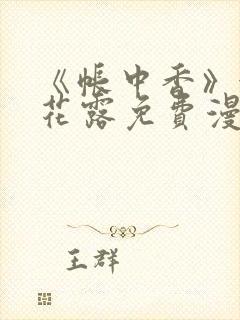 《帐中香》
花露免費漫
王群